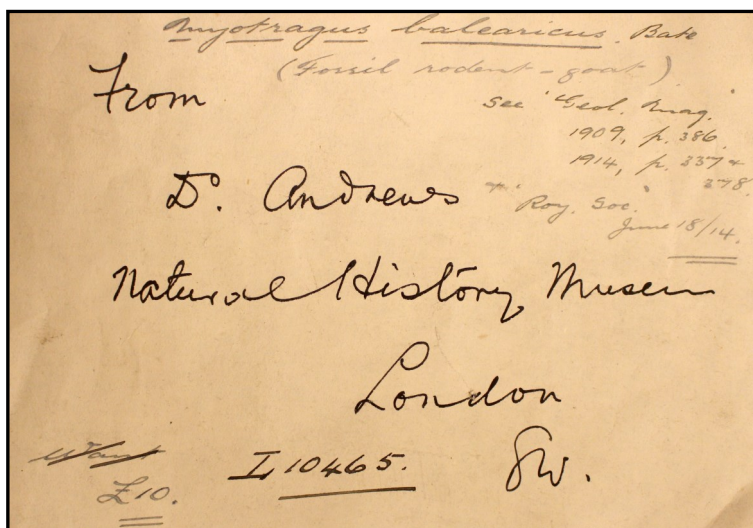 Myotragus balearicus. Bate
(Fossil rodent-goat)
From
See "Geol. Mag."
1909, p. 386
1914, p. 337 +
378.
"Roy. Soc."
June 18/14.
Dr. Andrews
Natural History Museum
London
SW.
I, 10465.
£10.